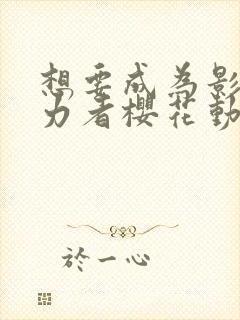 想要成為影
力者櫻花動
於一心